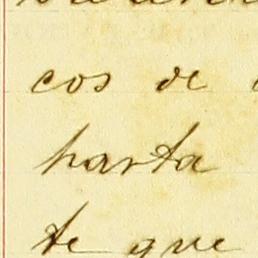 cos de
harta
te que